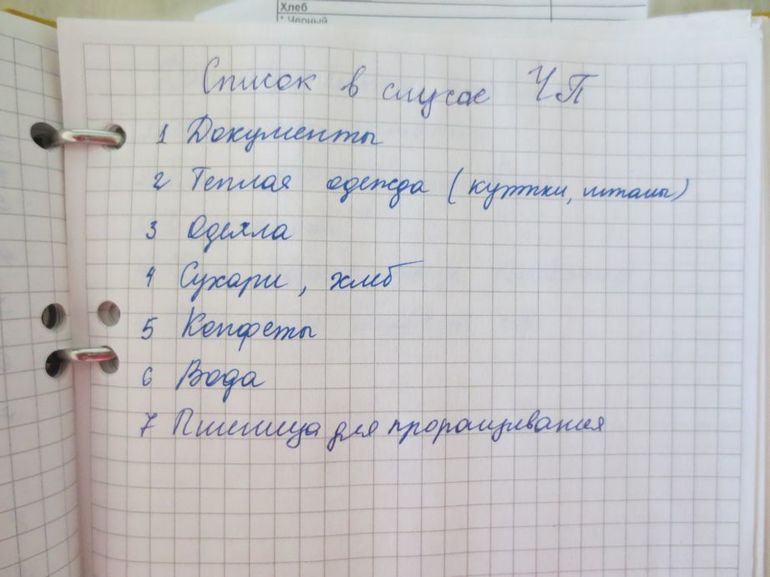 Хлеб
* Черный
Список в случае ЧП
1 Документы
2 Теплая одежда (куртки, штаны)
3 Одеяла
4 Сухари, хлеб
5 Конфеты
6 Вода
7 Пшеница для проращивания